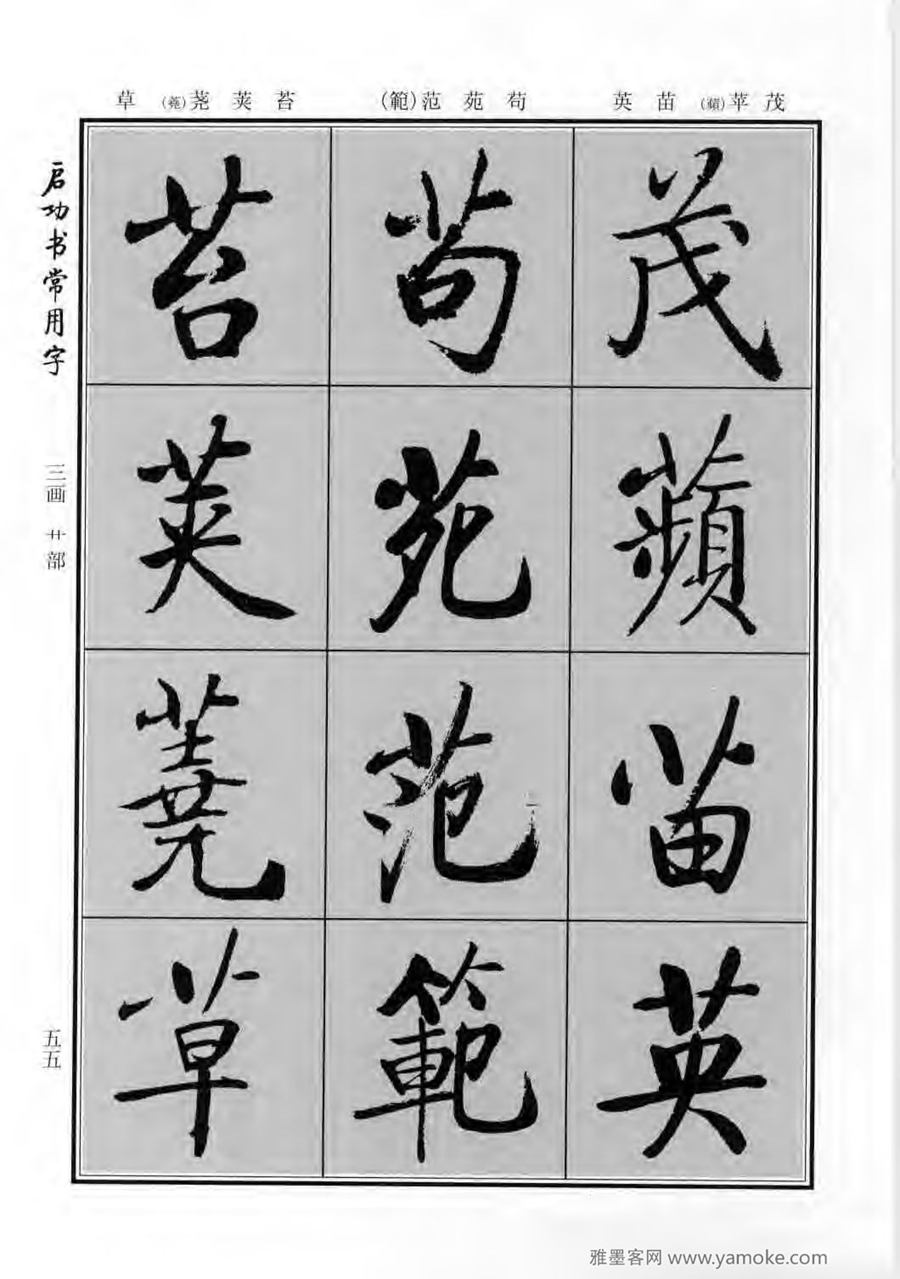 茂 苹(蘋) 苗 英
苟 苑 范(範)
苔 荚 荛(蕘) 草
茂蘋苗英
苟苑范範
苔荚蕘草
启功书常用字
三画 艹部
五五
雅墨客网 www.yamoke.com